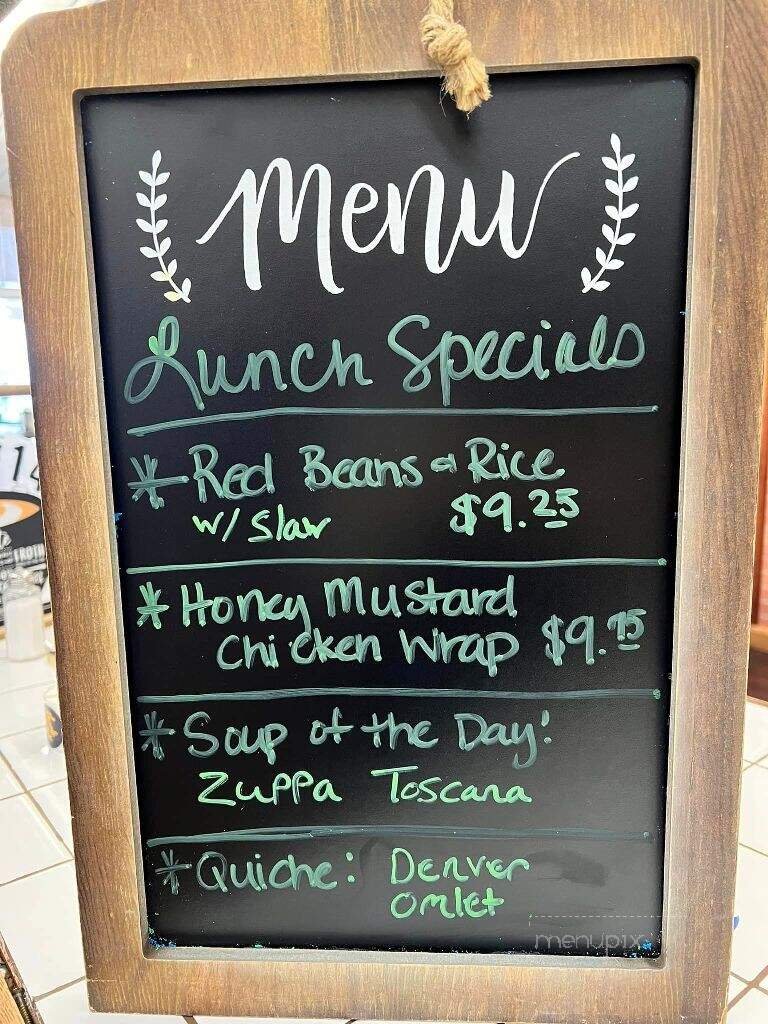 Menu
Lunch Specials
* Red Beans & Rice
w/ Slaw $9.25
* Honey Mustard
Chicken Wrap $9.75
* Soup of the Day!
Zuppa Toscana
* Quiche: Denver
Omlet
menupix
114
FROTH